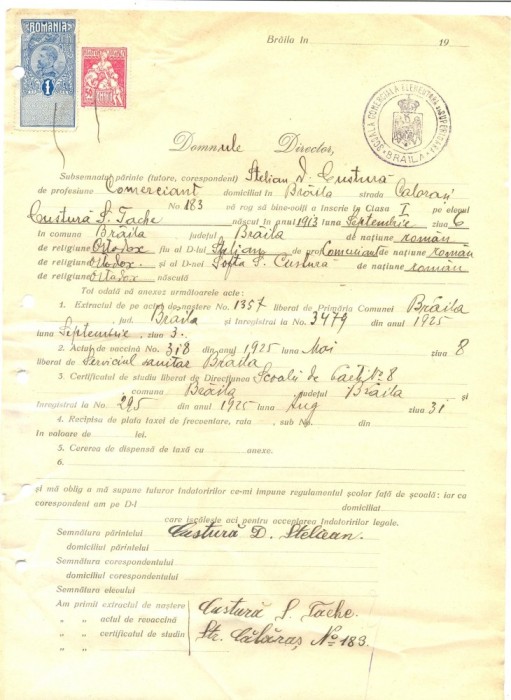 ROMANIA
1
Brăila în 19
ȘCOALA COMERCIALĂ ELEMENTARĂ ȘI SUPERIOARĂ
BRĂILA
Domnule Director,
Subsemnatul părinte (tutore, corespondent) Stelian D. Custură
de profesiune Comerciant domiciliat în Brăila strada
No 183 vă rog să bine-voiți a înscrie în Clasa I pe elevul
Custură S. Tache născut în anul 1913 luna Septembrie ziua 6
în comuna Brăila, județul Brăila de națiune român
de religiune Ortodox fiu al D-lui Stelian de prof. Comerciant de națiune român
de religiune Ortodox. și al D-nei Sofia S. Custură de națiune român
de religiune Ortodox născută
Tot odată vă anexez următoarele acte:
1. Extractul de pe actul de naștere No 1357 liberat de Primăria Comunei Brăila
, jud. Brăila și înregistrat la No 3479 din anul 1925
luna Septembrie ziua 3.
2. Actul de vaccină No 318 din anul 1925 luna Mai ziua 8
liberat de Serviciul sanitar Brăila
3. Certificatul de studiu liberat de Direcțiunea Școalii de Băeți No 8
, comuna Brăila județul Brăila și
înregistrat la No. 295 din anul 1925 luna Aug ziua 31
4. Recipisa de plata taxei de frecventare, rata sub No. din
în valoare de lei.
5. Cererea de dispensă de taxă cu anexe.
6.
și mă oblig a mă supune tuturor îndatoririlor ce-mi impune regulamentul școlar față de școală: iar ca
corespondent am pe D-l domiciliat
care iscălește aci pentru acceptarea îndatoririlor legale.
Semnătura părintelui Custură D. Stelian.
domiciliul părintelui
Semnătura corespondentului
domiciliul corespondentului
Semnătura elevului
Am primit extractul de naștere Custură S. Tache.
„ „ actul de revaccină Str. Călăraș No 183.
„ „ certificatul de studiu